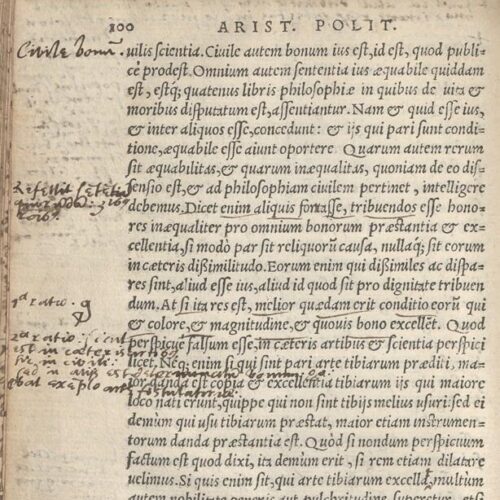 100
ARIST. POLIT.
Civile bonũ.
uilis scientia. Ciuile autem bonum ius est, id est, quod publi-
cè prodest. Omnium autem sententia ius æquabile quiddam
est, estq; quatenus libris philosophiæ in quibus de uita &
moribus disputatum est, assentiantur. Nam & quid esse ius,
& inter aliquos esse, concedunt: & ijs qui pari sunt condi-
tione, æquabile esse aiunt oportere. Quarum autem rerum
sit æquabilitas, & quarum inæqualitas, quoniam de eo dis-
sensio est, & ad philosophiam ciuilem pertinet, intelligere
debemus. Dicet enim aliquis fortasse, tribuendos esse hono-
res inæqualiter pro omnium bonorum præstantia & ex-
cellentia, si modò par sit reliquorũ causa, nullaq; sit eorum
in cæteris dißimilitudo. Eorum enim qui dißimiles ac dispa-
res sint, aliud esse ius, aliud id quod sit pro dignitate tribuen
dum. At si ita res est, melior quædam erit conditio eorũ qui
1ª ratio.
& colore, & magnitudine, & quouis bono excellẽt. Quod
perspicuè falsum esse, in cæteris artibus & scientia perspici
2ª ratio:
licet. Neq; enim si qui sint pari arte tibiarum præditi, ma-
ior danda est copia & excellentia tibiarum ijs qui maiore
loco nati erunt, quippe qui non sint tibijs melius usuri: sed ei
demùm qui usu tibiarum præstat, maior etiam instrumen-
torum danda præstantia est. Quòd si nondum perspicuum
factum est quod dixi, ita demùm erit, si rem etiam dilatare
uelimus. Si quis enim sit, qui arte tibiarum excellat, multum
autem nobilitate generis aut pulchritudine superetur, etsi